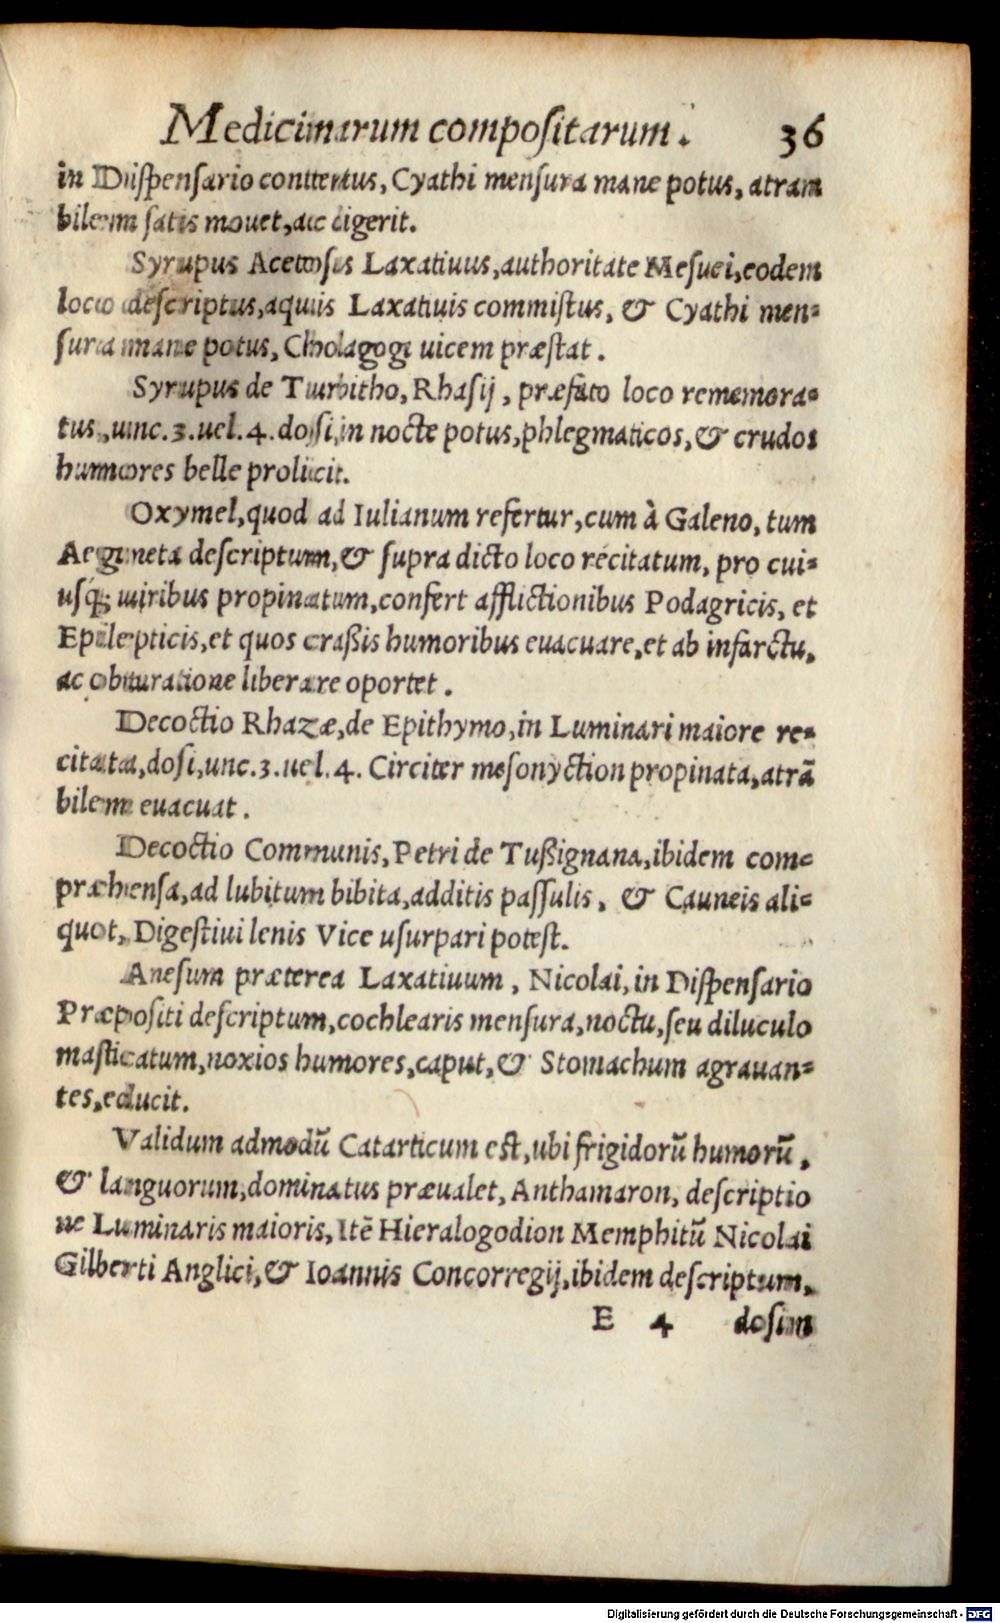 Medicinarum compositarum. 36
in Dispensario contentus, Cyathi mensura mane potus, atram
bilem satis mouet, ac digerit.
Syrupus Acetosus Laxatiuus, authoritate Mesuei, eodem
loco descriptus, aquis Laxatiuis commistus, & Cyathi men=
sura mane potus, Cholagogi uicem præstat.
Syrupus de Turbitho, Rhasij, præfato loco rememora=
tus, unc. 3. uel. 4. dosi, in nocte potus, phlegmaticos, & crudos
humores belle prolicit.
Oxymel, quod ad Iulianum refertur, cum à Galeno, tum
Aegineta descriptum, & supra dicto loco recitatum, pro cui=
usq́; uiribus propinatum, confert afflictionibus Podagricis, et
Epilepticis, et quos craßis humoribus euacuare, et ab infarctu,
ac obturatione liberare oportet.
Decoctio Rhazæ, de Epithymo, in Luminari maiore re=
citata, dosi, unc. 3. uel. 4. Circiter mesonyction propinata, atrā
bilem euacuat.
Decoctio Communis, Petri de Tußignana, ibidem com=
præhensa, ad lubitum bibita, additis passulis, & Cauneis ali=
quot, Digestiui lenis Vice usurpari potest.
Anesum præterea Laxatiuum, Nicolai, in Dispensario
Præpositi descriptum, cochlearis mensura, noctu, seu diluculo
masticatum, noxios humores, caput, & Stomachum agrauan=
tes, educit.
Validum admodū Catarticum est, ubi frigidorū humorū,
& languorum, dominatus præualet, Anthamaron, descriptio
ne Luminaris maioris, Itē Hieralogodion Memphitū Nicolai
Gilberti Anglici, & Ioannis Concorregij, ibidem descriptum,
E 4 dosim
Digitalisierung gefördert durch die Deutsche Forschungsgemeinschaft - DFG